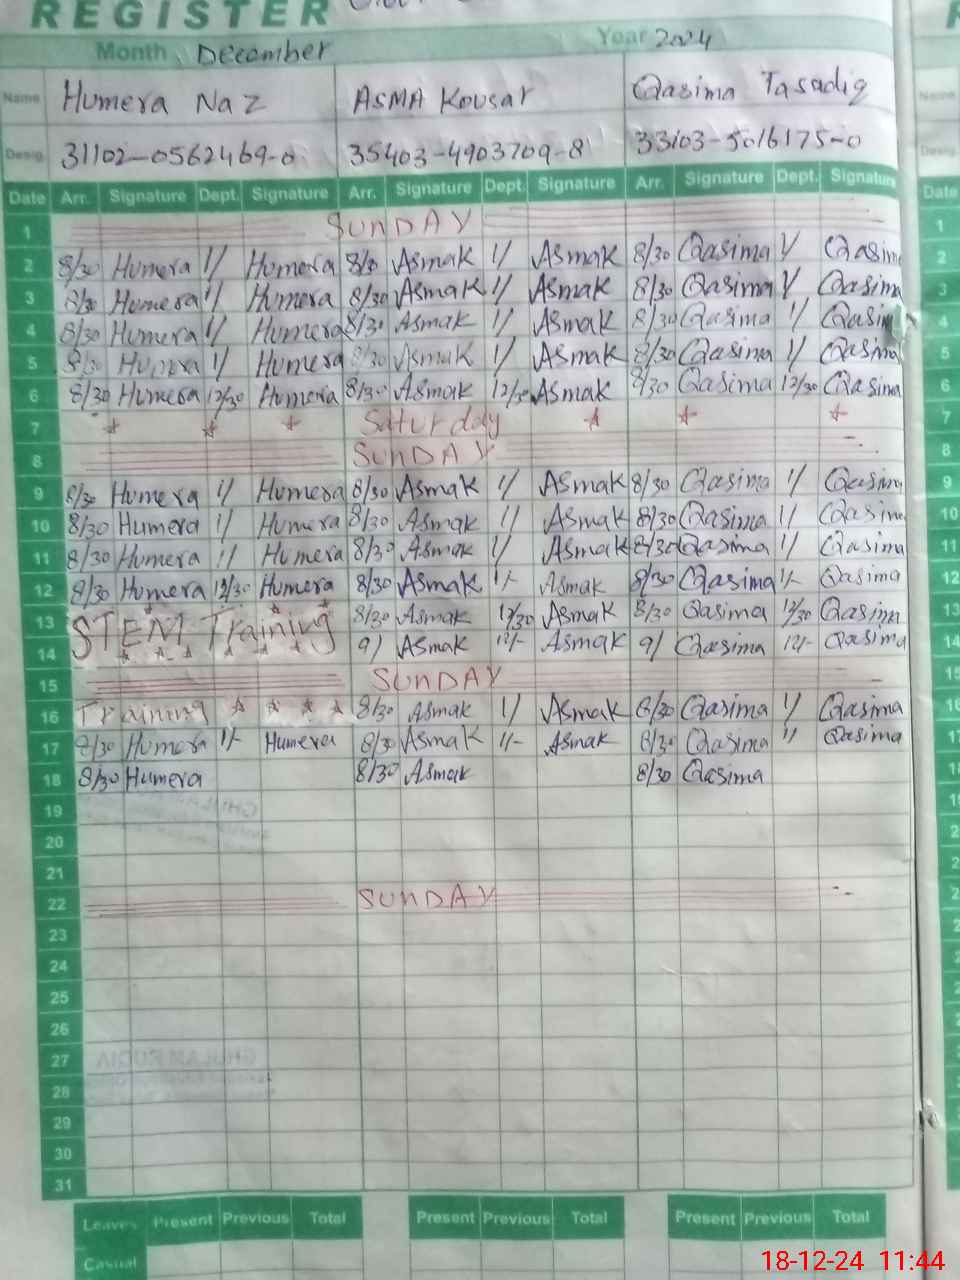 REGISTER
Month December Year 2024
Name Humera Naz ASMA Kousar Qasima Tasadiq Name
Desig. 31102-0562469-0 35403-4903709-8 33103-5016175-0 Desig.
Date Arr. Signature Dept. Signature Arr. Signature Dept. Signature Arr. Signature Dept. Signature Date
1 SUNDAY 1
2 8/30 Humera 1/ Humera 8/30 AsmaK 1/ AsmaK 8/30 Qasima 1/ Qasim 2
3 8/30 Humera 1/ Humera 8/30 AsmaK 1/ AsmaK 8/30 Qasima 1/ Qasim 3
4 8/30 Humera 1/ Humera 8/30 AsmaK 1/ AsmaK 8/30 Qasima 1/ Qasim 4
5 8/30 Humera 1/ Humera 8/30 AsmaK 1/ AsmaK 8/30 Qasima 1/ Qasima 5
6 8/30 Humera 12/30 Humera 8/30 AsmaK 12/30 AsmaK 8/30 Qasima 12/30 Qasima 6
7 Saturday 7
8 SUNDAY 8
9 8/30 Humera 1/ Humera 8/30 AsmaK 1/ AsmaK 8/30 Qasima 1/ Qasim 9
10 8/30 Humera 1/ Humera 8/30 AsmaK 1/ AsmaK 8/30 Qasima 1/ Qasima 10
11 8/30 Humera 1/ Humera 8/30 AsmaK 1/ AsmaK 8/30 Qasima 1/ Qasima 11
12 8/30 Humera 12/30 Humera 8/30 AsmaK 1/- AsmaK 8/30 Qasima 1/- Qasima 12
13 STEM Training 8/30 AsmaK 12/30 AsmaK 8/30 Qasima 12/30 Qasima 13
14 9/ AsmaK 12/- AsmaK 9/ Qasima 12/- Qasima 14
15 SUNDAY 15
16 Training 8/30 AsmaK 1/ AsmaK 8/30 Qasima 1/ Qasima 16
17 8/30 Humera 1/- Humera 8/30 AsmaK 1/- AsmaK 8/30 Qasima 1/ Qasima 17
18 8/30 Humera 8/30 AsmaK 8/30 Qasima 18
19
20
21
22 SUNDAY
23
24
25
26
27
28
29
30
31
Leaves Present Previous Total Present Previous Total Present Previous Total
Casual
18-12-24 11:44